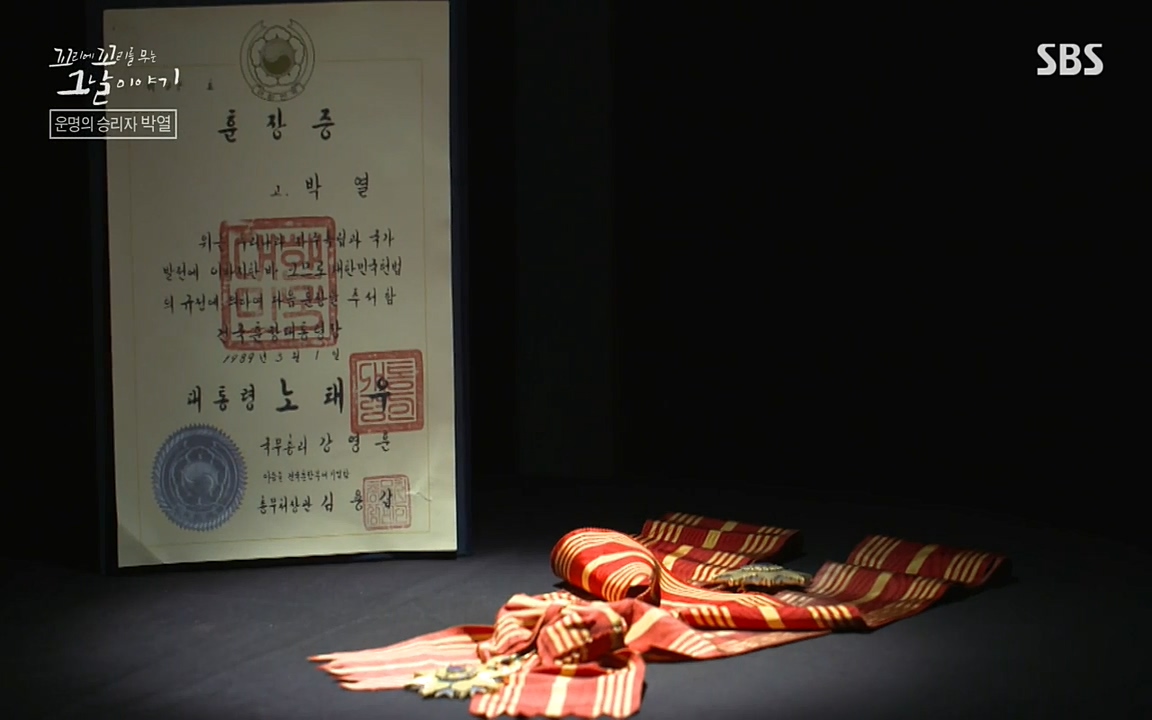 꼬리에 꼬리를 무는
그날 이야기
운명의 승리자 박열
SBS
훈장증
고. 박 열
위는 우리나라 자주독립과 국가
발전에 이바지한 바 크므로 대한민국헌법
의 규정에 의하여 다음 훈장을 추서함
건국훈장대통령장
1989년 3월 1일
대통령 노태우
국무총리 강영훈
총무처장관 김용갑